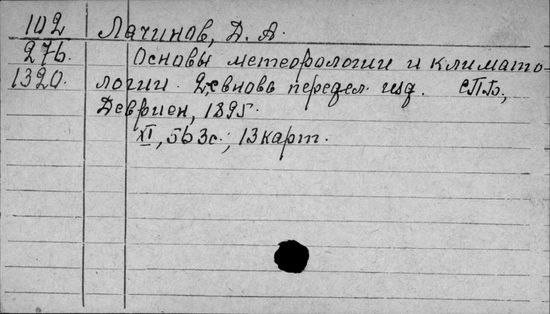 102 Лачинов, Д. А.
276. Основы метеорологии и климато-
1320. логии. 2е вновь передел. изд. СПБ,
Девриен, 1895.
XI, 563с., 13 карт.